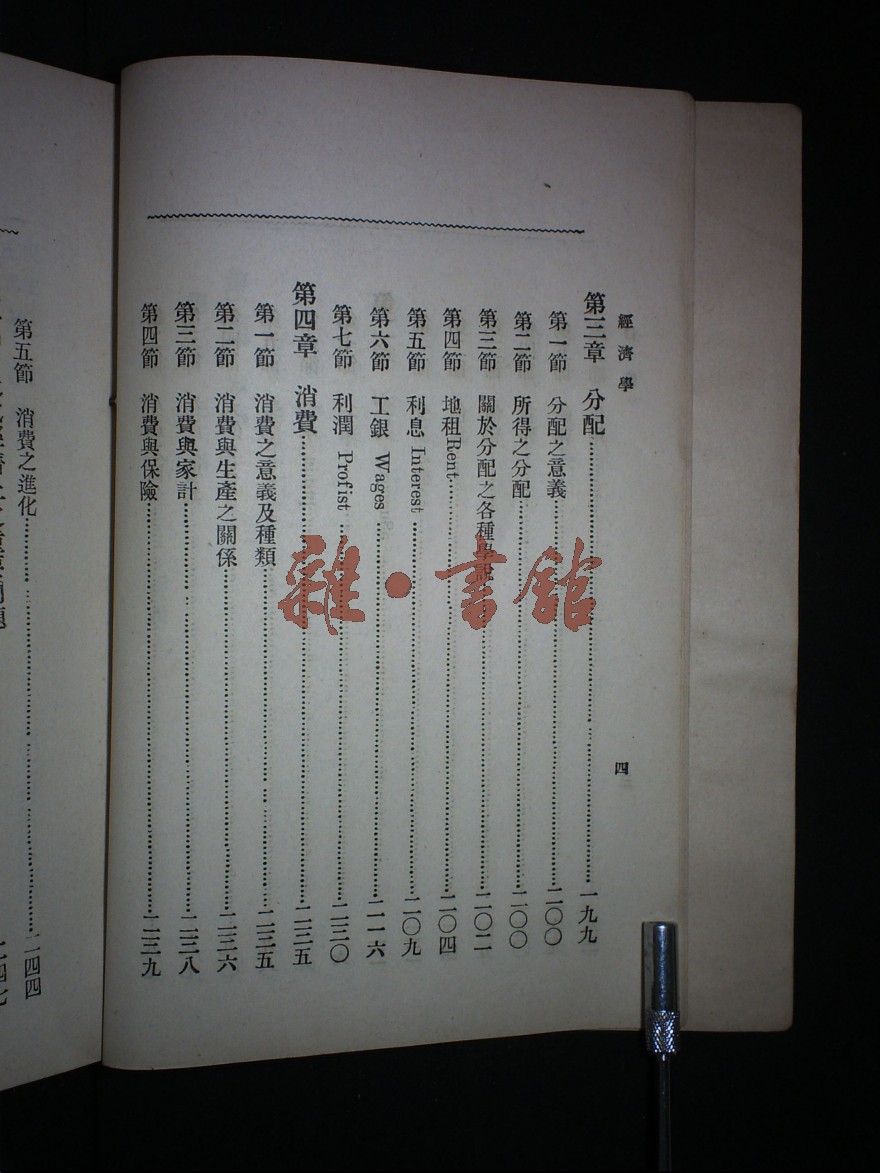 經濟學
四
第三章　分配……一九九
第一節　分配之意義……二〇〇
第二節　所得之分配……二〇〇
第三節　關於分配之各種學說……二〇二
第四節　地租Rent……二〇四
第五節　利息Interest……二〇九
第六節　工銀 Wages……二一六
第七節　利潤 Profist……二三〇
第四章　消費……二三五
第一節　消費之意義及種類……二三五
第二節　消費與生產之關係……二三六
第三節　消費與家計……二三八
第四節　消費與保險……二三九
第五節　消費之進化……二四四
雜·書館